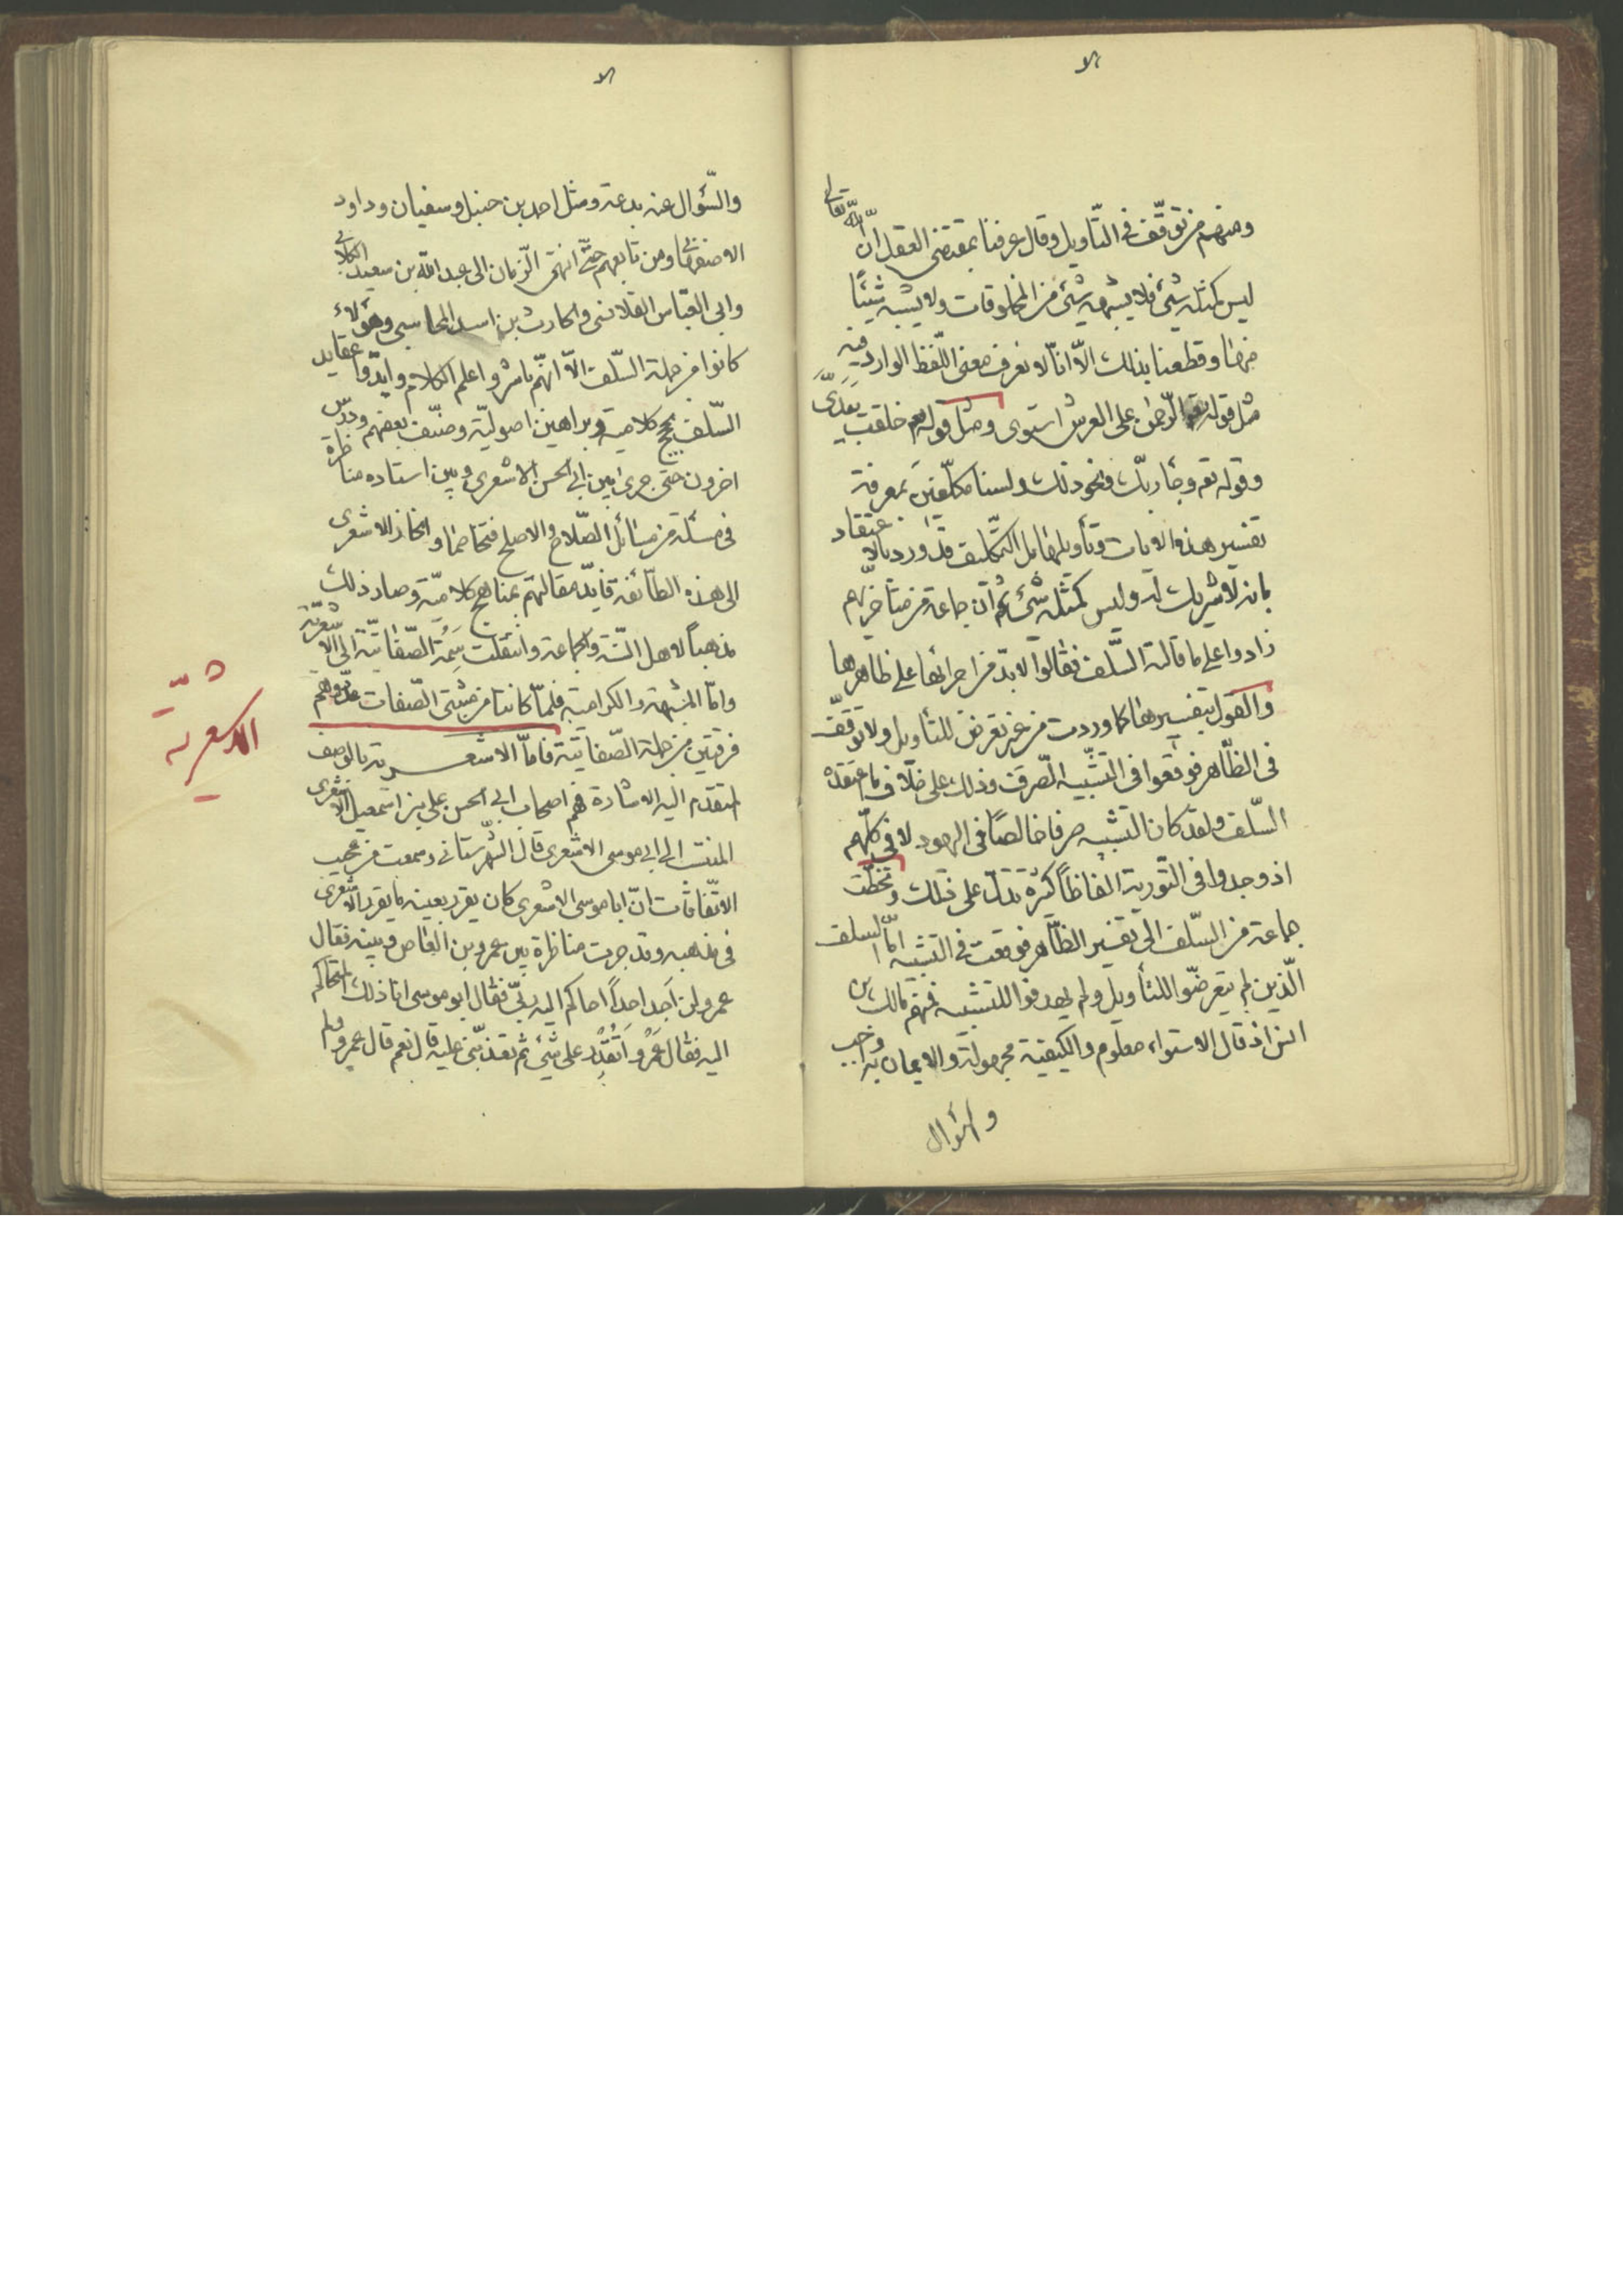 ومنهم من توقّف فى التّأويل وقال عرفنا بمقتضى العقل انّ اللّه تعالى
ليس كمثله شئ فلا يشبهه شئ من المخلوقات ولا يشبه شيئًا
منها وقطعنا بذلك الاّ انّا لا نعرف معنى اللّفظ الوارد فيه
مثل قوله تع الرّحمن على العرش استوى ومثل قوله تع خلقت بيدىّ
وقوله تع وجاء ربّك ونحو ذلك ولسنا مكلّفين بمعرفة
تفسير هذه الايات وتأويلها بل التّكليف قد ورد بالاعتقاد
بانه لا شريك له وليس كمثله شئ ثم انّ جماعة من متأخّريهم
زادوا على ما قاله السّلف فقالوا لا بدّ من اجرائها على ظاهرها
والقول بتفسيرها كما وردت من غير تعرّض للتأويل ولا توقّف
فى الظّاهر فوقعوا فى التشبيه الصّرف وذلك على خلاف ما اعتقده
السّلف ولقد كان التشبيه صرفا خالصًا فى اليهود لا فى كلّهم
اذ وجدوا فى التّورية الفاظاً كثيرة تدلّ على ذلك وتخطّت
جماعة من السّلف الى تفسير الظّاهر فوقعت فى التشبيه امّا السلف
الّذين لم يتعرضّوا للتأويل ولم يهدفوا للتشبيه فمنهم مالك بن
انس اذ قال الاستواء معلوم والكيفية مجهولة والايمان به واجب
والسّؤال
والسّؤال عنه بدعة ومثل احمد بن حنبل وسفيان وداود
الاصفهانى ومن تابعهم حتّى انتهى الزّمان الى عبد اللّه بن سعيد الكلابى
وابى العبّاس القلانسى والحارث بن اسد المحاسبى وهؤلاء
كانوا من جملة السّلف الاّ انّهم باشروا علم الكلام وايدّوا عقايد
السّلف بحجج كلامية وبراهين اصوليّة وصنّف بعضهم ودرّس
اخرون حتى جرى بين ابى الحسن الاشعرى وبين استاده مناظرة
فى مسئلة من مسائل الصّلاح والاصلح فتخاصما وانحاز الاشعرى
الى هذه الطّائفة فايّد مقالتهم بمناهج كلاميّة وصار ذلك
مذهباً لاهل السّنة والجماعة وانتقلت سِمَة الصّفاتيّة الى الاشعريّة
وامّا المشبّهة والكراميّة فلمّا كانتا من مثبتى الصّفات عدّوهم
فرقتين من جملة الصّفاتيّة فامّا الاشعرية بالوصف
المتقدم اليه الاشارة فهم اصحاب ابى الحسن على بن اسمعيل الاشعرى
المنتسب الى ابى موسى الاشعرى قال الشّهرستانى وسمعت من عجيب
الاتّفاقات انّ ابا موسى الاشعرى كان يقرر بعينه ما يقرر الاشعرى
فى مذهبه وقد جرت مناظرة بين عمرو بن العاص وبينه فقال
عمرو لئن اَجد احداً احاكم اليه ربّى فقال ابو موسى انا ذلك المتحاكم
اليه فقال عَمْرو اَتُقَدِّر على شئ ثم تعذّبنى عليه قال نعم قال عمرو ولم
الاشعرية